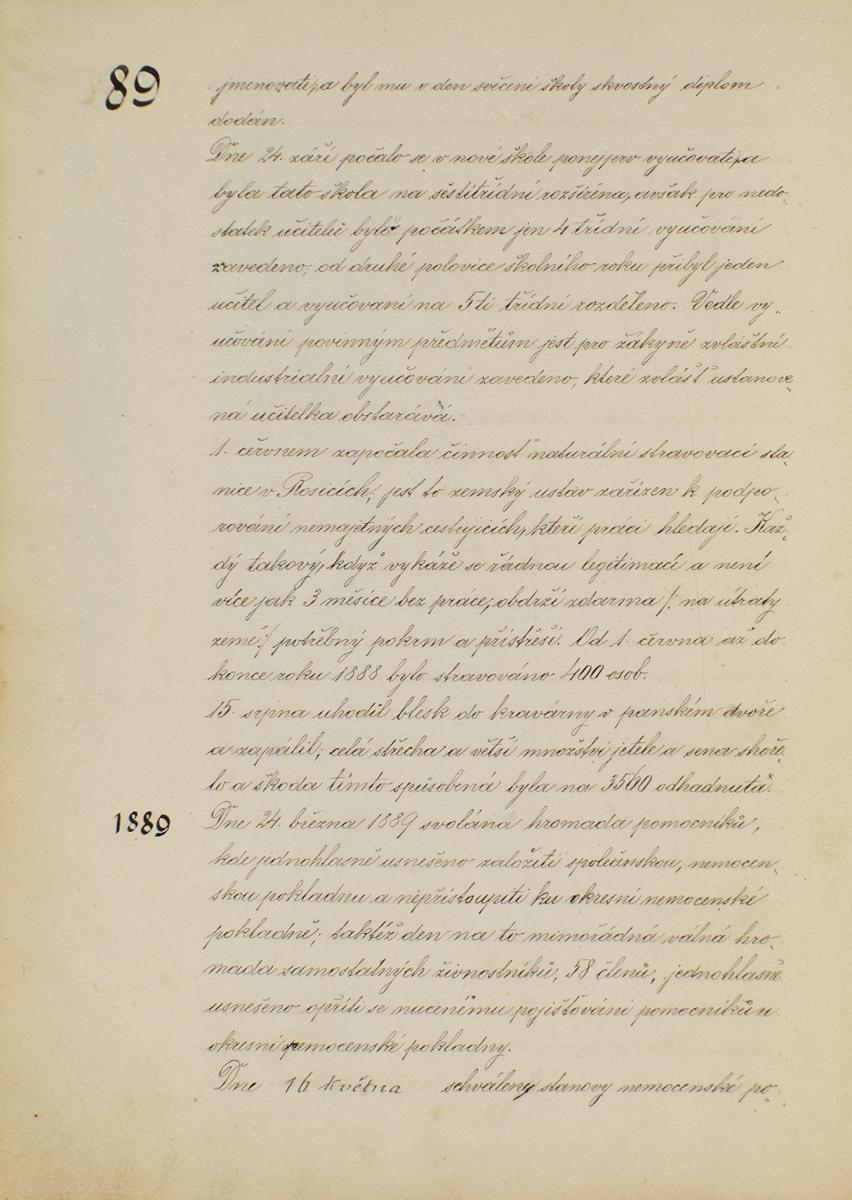 89
jmenovati, a byl mu v den svěcení školy skvostný diplom
dodán.
Dne 24. září počalo se v nové škole ponejprv vyučovati, a
byla tato škola na šestitřídní rozšířena, avšak pro nedo-
statek učitelů bylo počátkem jen 4 třídní vyučování
zavedeno, od druhé polovice školního roku přibyl jeden
učitel a vyučování na 5ti třídní rozděleno. Vedle vy-
učování povinným předmětům jest pro žákyně zvláštní
industrialní vyučování zavedeno, které zvlášť ustanove-
ná učitelka obstarává.
1. červnem započala činnost naturální stravovací sta-
nice v Rosicích, jest to zemský ustav zařízen k podpo-
rování nemajetných cestujících, kteří práci hledají. Kaž-
dý takový, když vykáže se řádnou legitimací a není
více jak 3 měsíce bez práce, obdrží zdarma /: na útraty
země :/ potřebný pokrm a přístřeší. Od 1. června až do
konce roku 1888 bylo stravováno 400 osob.
15. srpna uhodil blesk do kravárny v panském dvoře
a zapálil; celá střecha a větší množství jetele a sena shoře-
lo a škoda tímto spůsobená byla na 3500 odhadnuta.
1889
Dne 24. března 1889 svolána hromada pomocníků,
kde jednohlasně usnešeno založiti společenskou, nemocen-
skou pokladnu a nepřistoupiti ku okresní nemocenské
pokladně; taktéž den na to mimořádná válná hro-
mada samostatných živnostníků, 58 členů, jednohlasně
usnešeno opříti se nucenému pojišťování pomocníků u
okresní nemocenské pokladny.
Dne 16 května schváleny stanovy nemocenské po-